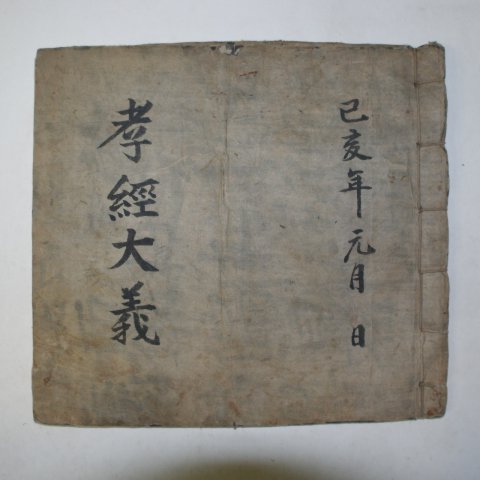 己亥年 元月 日
孝經大義